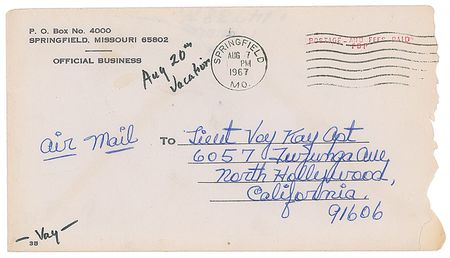 P. O. Box No. 4000
SPRINGFIELD, MISSOURI 65802
OFFICIAL BUSINESS
Aug 20th
Vacation
SPRINGFIELD
AUG 7
PM
1967
MO.
POSTAGE AND FEES PAID
Air Mail
TO Lieut Voy Kay Apt
6057 Tujunga Ave
North Hollywood,
California.
91606
– Vay –
38